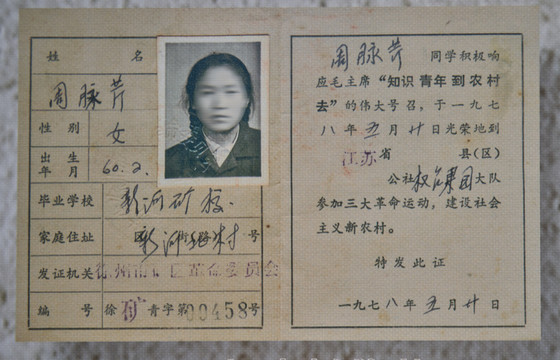 姓 名
周脉芹
性 别 女
出 生
年 月 60.2.
毕业学校 新河矿校.
家庭住址 新河 村 号
发证机关 徐州市矿区革命委员会
编 号 徐矿青字第00458号
周脉芹 同学积极响
应毛主席“知识青年到农村
去”的伟大号召，于一九七
八年五月廿日光荣地到
江苏省 县(区)
公社 集团大队
参加三大革命运动，建设社会
主义新农村。
特发此证
一九七八年五月廿日